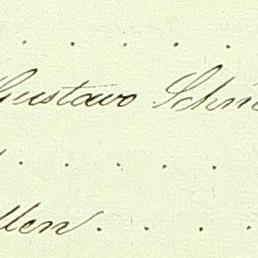 Gustavo Schn
llen